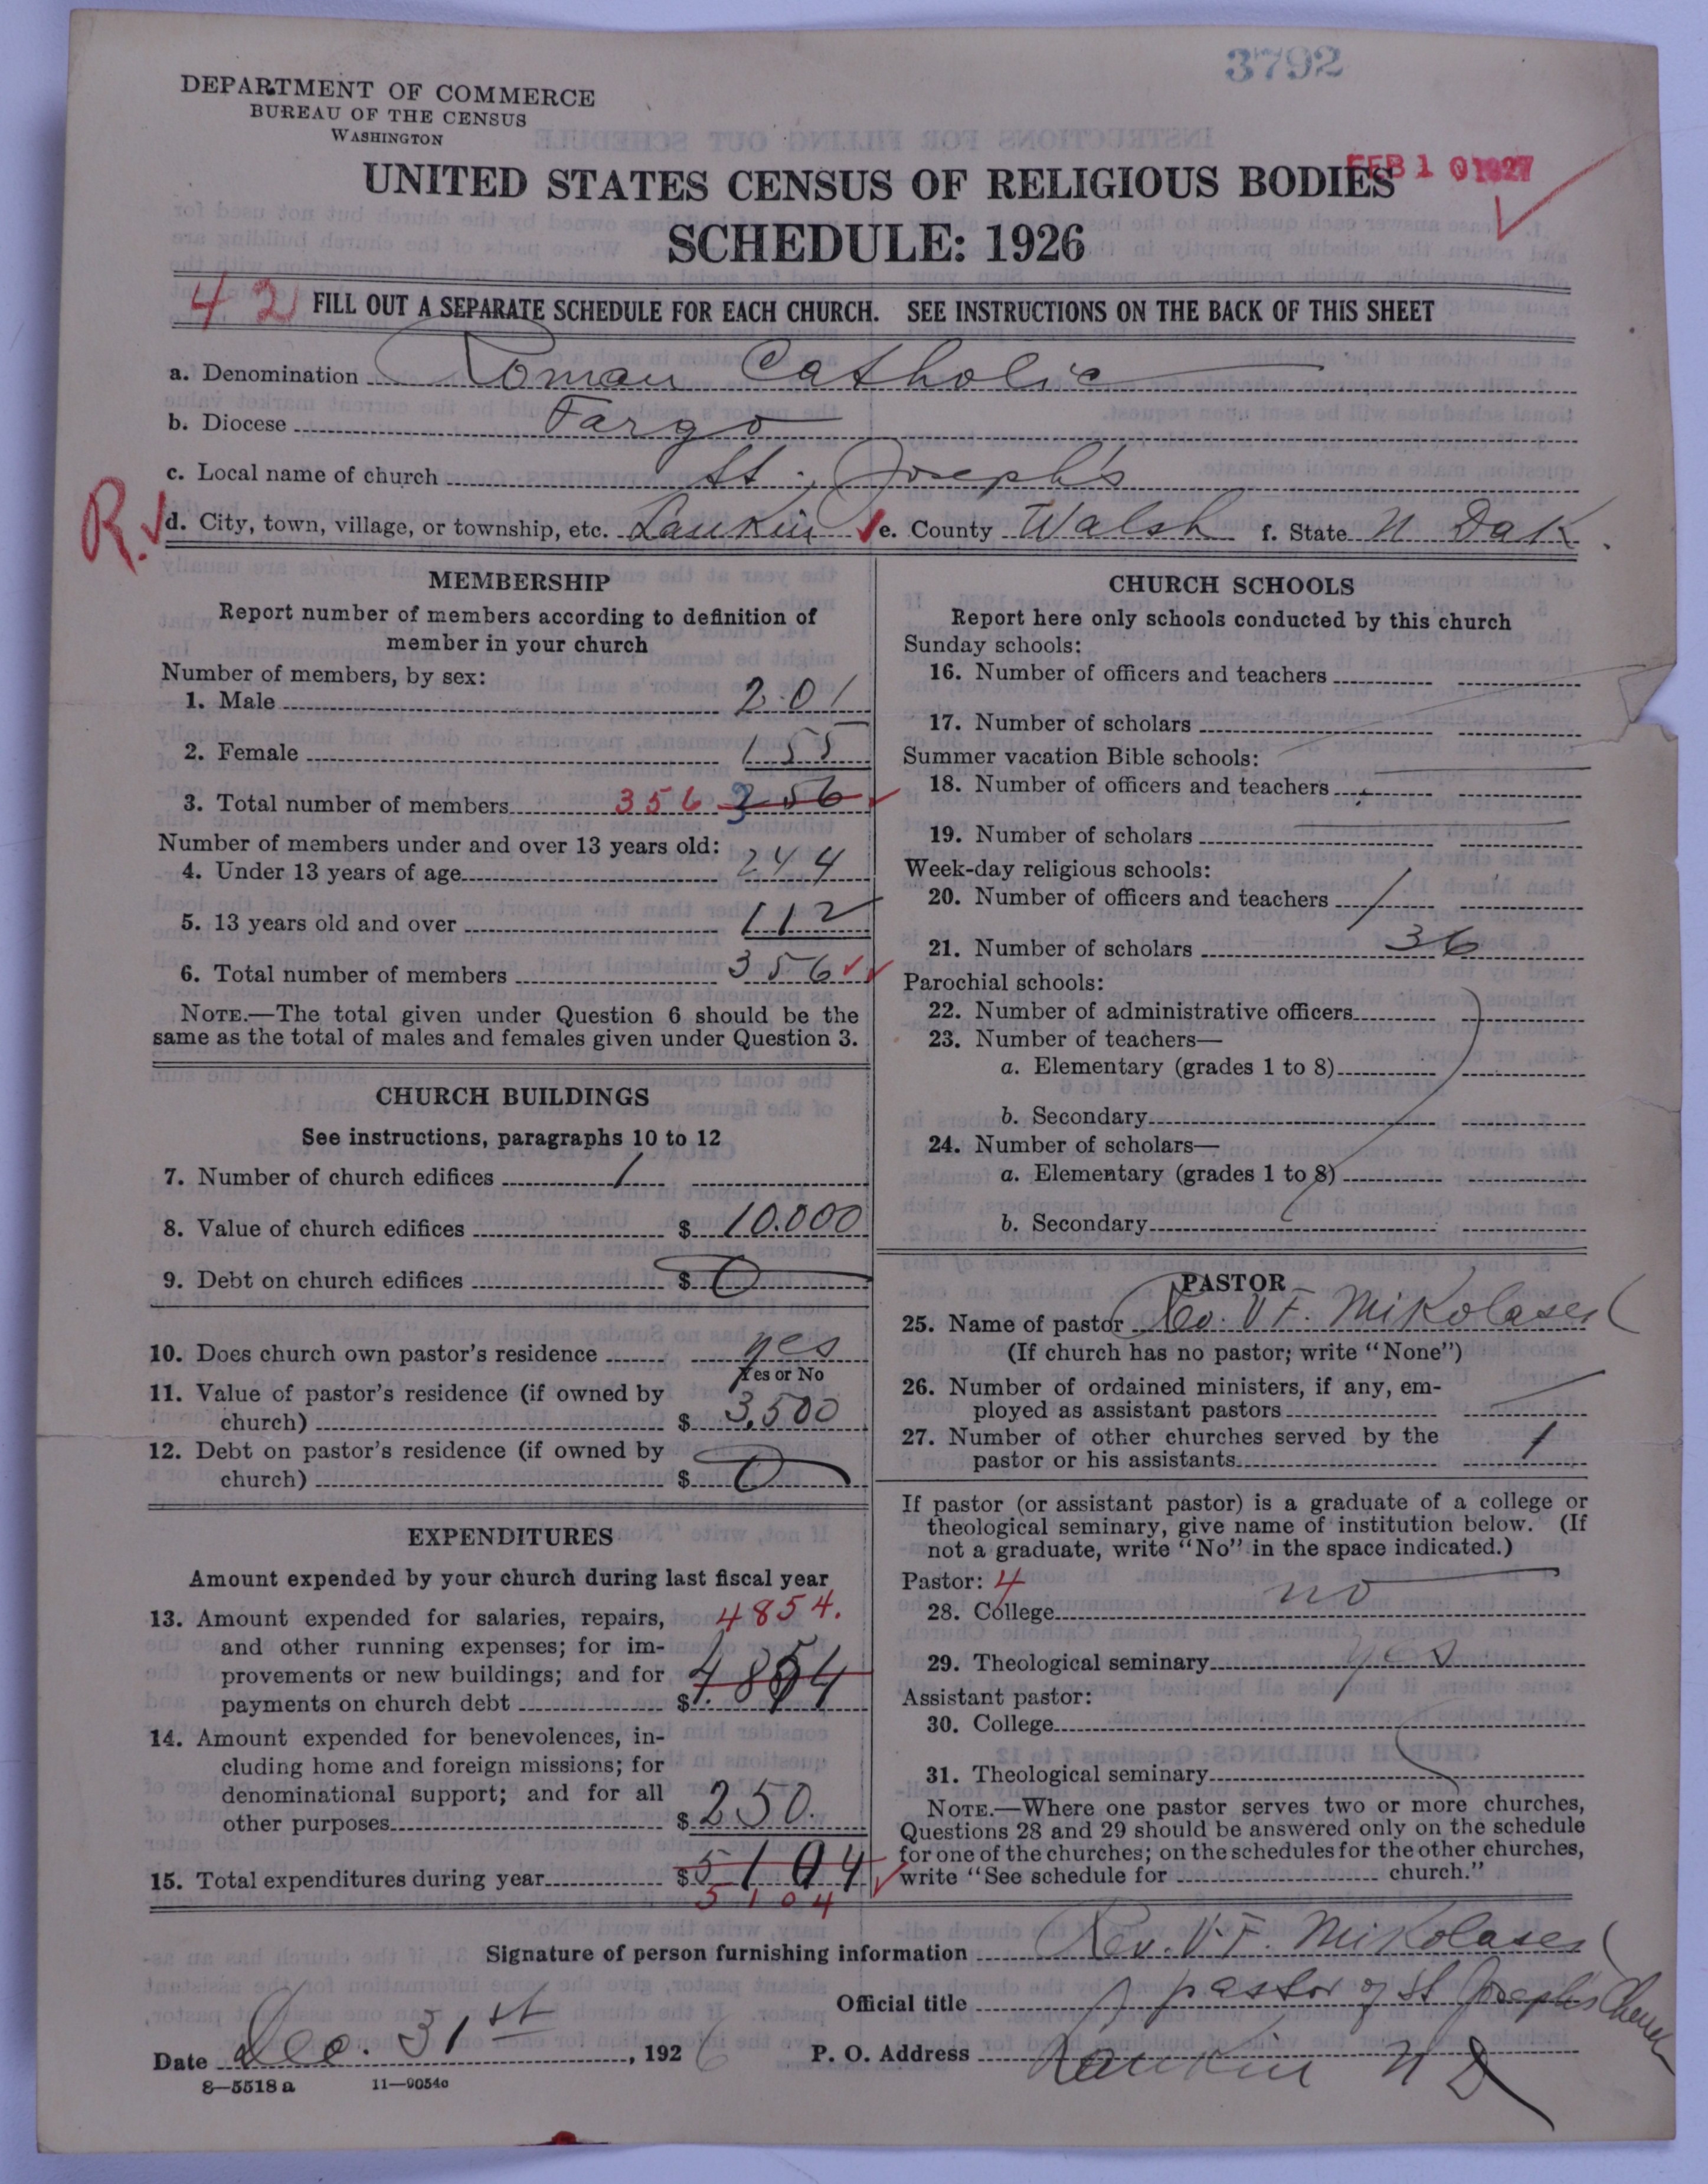 3792
DEPARTMENT OF COMMERCE
BUREAU OF THE CENSUS
WASHINGTON
UNITED STATES CENSUS OF RELIGIOUS BODIES
FEB 10 1927
SCHEDULE: 1926
42 FILL OUT A SEPARATE SCHEDULE FOR EACH CHURCH. SEE INSTRUCTIONS ON THE BACK OF THIS SHEET
a. Denomination Roman Catholic
b. Diocese Fargo
c. Local name of church St. Joseph's
R. d. City, town, village, or township, etc. Lankin e. County Walsh f. State N Dak.
MEMBERSHIP
Report number of members according to definition of
member in your church
Number of members, by sex:
1. Male 201
2. Female 155
3. Total number of members 356 256
Number of members under and over 13 years old:
4. Under 13 years of age 244
5. 13 years old and over 112
6. Total number of members 356
NOTE.—The total given under Question 6 should be the
same as the total of males and females given under Question 3.
CHURCH BUILDINGS
See instructions, paragraphs 10 to 12
7. Number of church edifices 1
8. Value of church edifices $ 10.000
9. Debt on church edifices $ 0
10. Does church own pastor's residence yes
Yes or No
11. Value of pastor's residence (if owned by
church) $ 3,500
12. Debt on pastor's residence (if owned by
church) $ 0
EXPENDITURES
Amount expended by your church during last fiscal year
13. Amount expended for salaries, repairs, 4854.
and other running expenses; for im-
provements or new buildings; and for
payments on church debt $ 4854
14. Amount expended for benevolences, in-
cluding home and foreign missions; for
denominational support; and for all
other purposes $ 250.
15. Total expenditures during year $ 5104
5104
CHURCH SCHOOLS
Report here only schools conducted by this church
Sunday schools:
16. Number of officers and teachers
17. Number of scholars
Summer vacation Bible schools:
18. Number of officers and teachers
19. Number of scholars
Week-day religious schools:
20. Number of officers and teachers 1
21. Number of scholars 36
Parochial schools:
22. Number of administrative officers
23. Number of teachers—
a. Elementary (grades 1 to 8)
b. Secondary
24. Number of scholars—
a. Elementary (grades 1 to 8)
b. Secondary
PASTOR
25. Name of pastor Rev. V F. Mikolasek
(If church has no pastor; write "None")
26. Number of ordained ministers, if any, em-
ployed as assistant pastors
27. Number of other churches served by the
pastor or his assistants 1
If pastor (or assistant pastor) is a graduate of a college or
theological seminary, give name of institution below. (If
not a graduate, write "No" in the space indicated.)
Pastor: 4
28. College no
29. Theological seminary yes
Assistant pastor:
30. College
31. Theological seminary
NOTE.—Where one pastor serves two or more churches,
Questions 28 and 29 should be answered only on the schedule
for one of the churches; on the schedules for the other churches,
write "See schedule for church."
Signature of person furnishing information Rev. V. F. Mikolasek
Official title pastor of St Joseph's Church
Date Dec. 31st, 1926
P. O. Address Lankin N D
8—5518 a 11—9054c